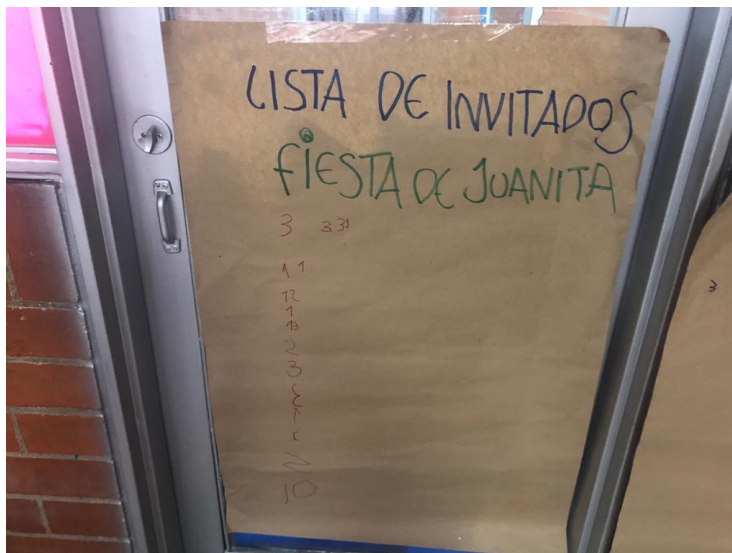 LISTA DE INVITADOS
FIESTA DE JUANITA
3 33
1 1
12
1
13
2
3
2
10
3